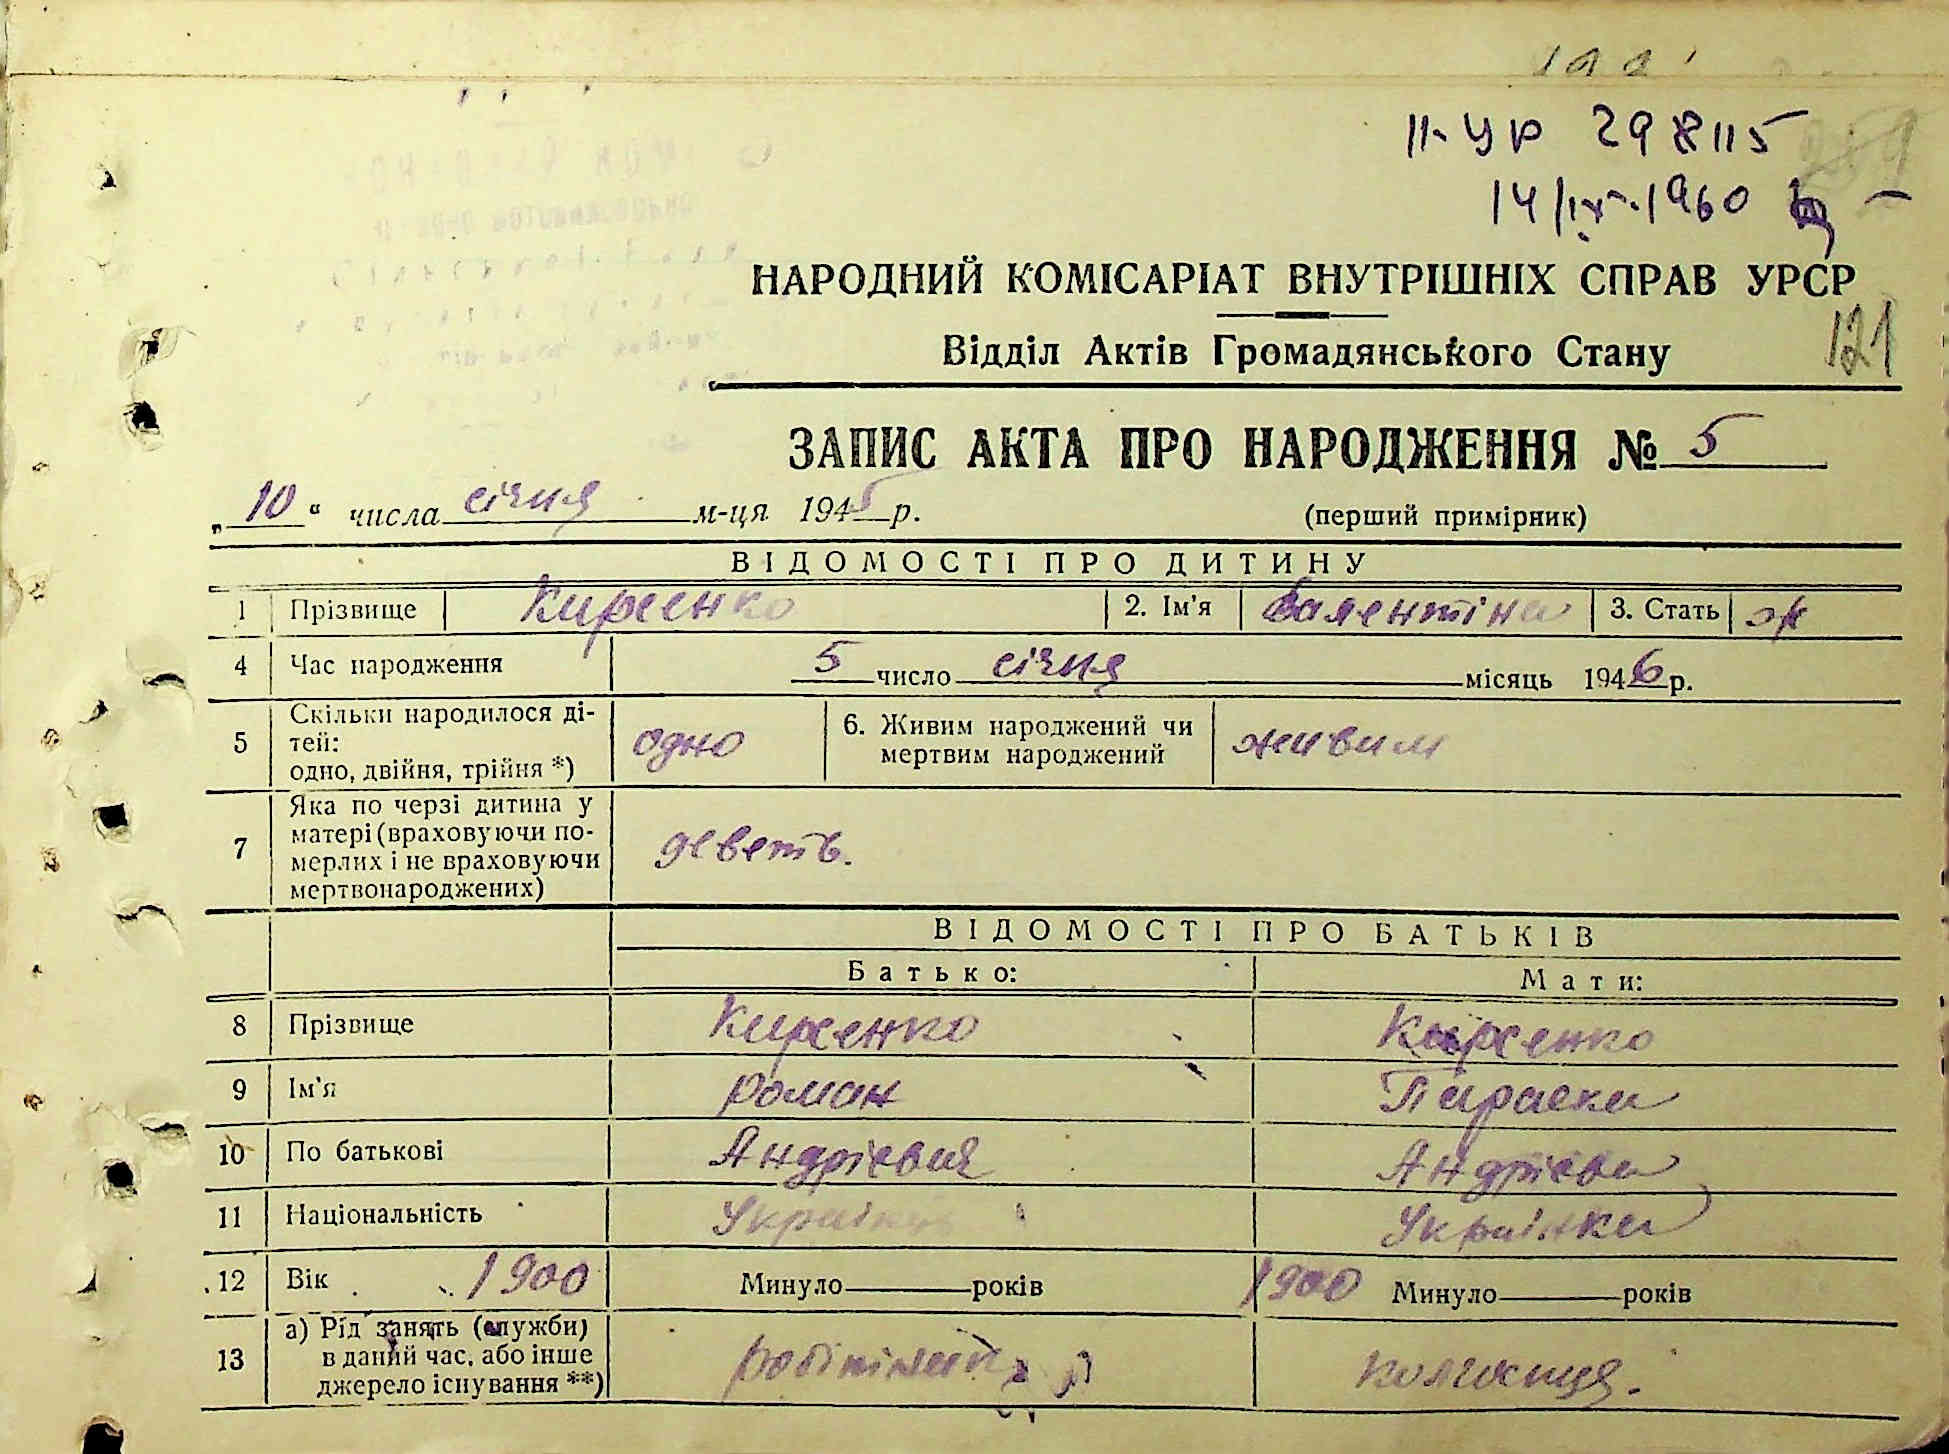 II-УР 298115
14/IX.1960
НАРОДНИЙ КОМІСАРІАТ ВНУТРІШНІХ СПРАВ УРСР
Відділ Актів Громадянського Стану
121
ЗАПИС АКТА ПРО НАРОДЖЕННЯ № 5
„10“ числа січня м-ця 1945 р.
(перший примірник)
ВІДОМОСТІ ПРО ДИТИНУ
1 Прізвище Кирсенко 2. Ім'я Валентіна 3. Стать ж
4 Час народження 5 число січня місяць 1946 р.
5 Скільки народилося ді-
тей:
одно, двійня, трійня *) одно
6. Живим народжений чи
мертвим народжений живим
7 Яка по черзі дитина у
матері (враховуючи по-
мерлих і не враховуючи
мертвонароджених) деветь.
ВІДОМОСТІ ПРО БАТЬКІВ
Батько: Мати:
8 Прізвище Кирсенко Кирсенко
9 Ім'я Роман Параска
10 По батькові Андрієвич Андрієва
11 Національність Українець Українка
12 Вік 1900 Минуло років 1900 Минуло років
13 а) Рід занять (служби)
в даний час, або інше
джерело існування **) колгоспця.